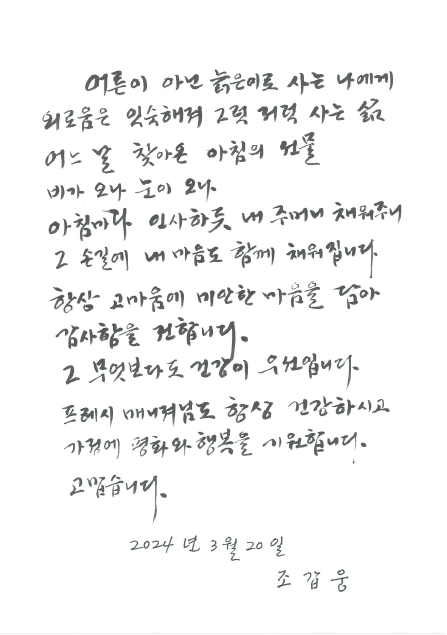 어른이 아닌 늙은이로 사는 나에게
외로움은 익숙해져 그럭 저럭 사는 삶
어느 날 찾아온 아침의 선물
비가 오나 눈이 오나.
아침마다 인사하듯 내 주머니 채워주니
그 손길에 내 마음도 함께 채워집니다.
항상 고마움에 미안한 마음을 담아
감사함을 전합니다.
그 무엇보다도 건강이 우선입니다.
프레시 매니져님도 항상 건강하시고
가정에 평화와 행복을 기원합니다.
고맙습니다.
2024 년 3월 20일
조 갑 웅